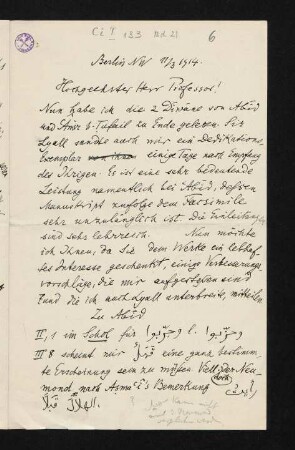 6
Berlin NW 11/3 1914.
Hochgeehrter Herr Professor!
Nun habe ich die 2 Dīwāne von ʿAbīd
und ʿĀmir b. Ṭufail zu Ende gelesen. Sir
Lyall sandte auch mir ein Dedikations-
Exemplar einige Tage nach Empfang
des Ihrigen. Es ist eine sehr bedeutende
Leistung namentlich bei ʿAbīd, dessen
Manuscript zufolge dem Facsimile
sehr unzulänglich ist. Die Einleitungen
sind sehr lehrreich. Nun möchte
ich Ihnen, da Sie dem Werke ein lebhaf-
tes Interesse geschenkt, einige Verbesserungs-
vorschläge, die mir aufgestoßen sind
und die ich auch Lyall unterbreite, mitteilen.
Zu ʿAbīd
II, 1 im Schol für
III 8 scheint mir eine ganz bestimm-
te Erscheinung sein zu müssen Viell. der Neu-
mond, nach Aṣmaʿī's Bemerkung
الهلال قبلا